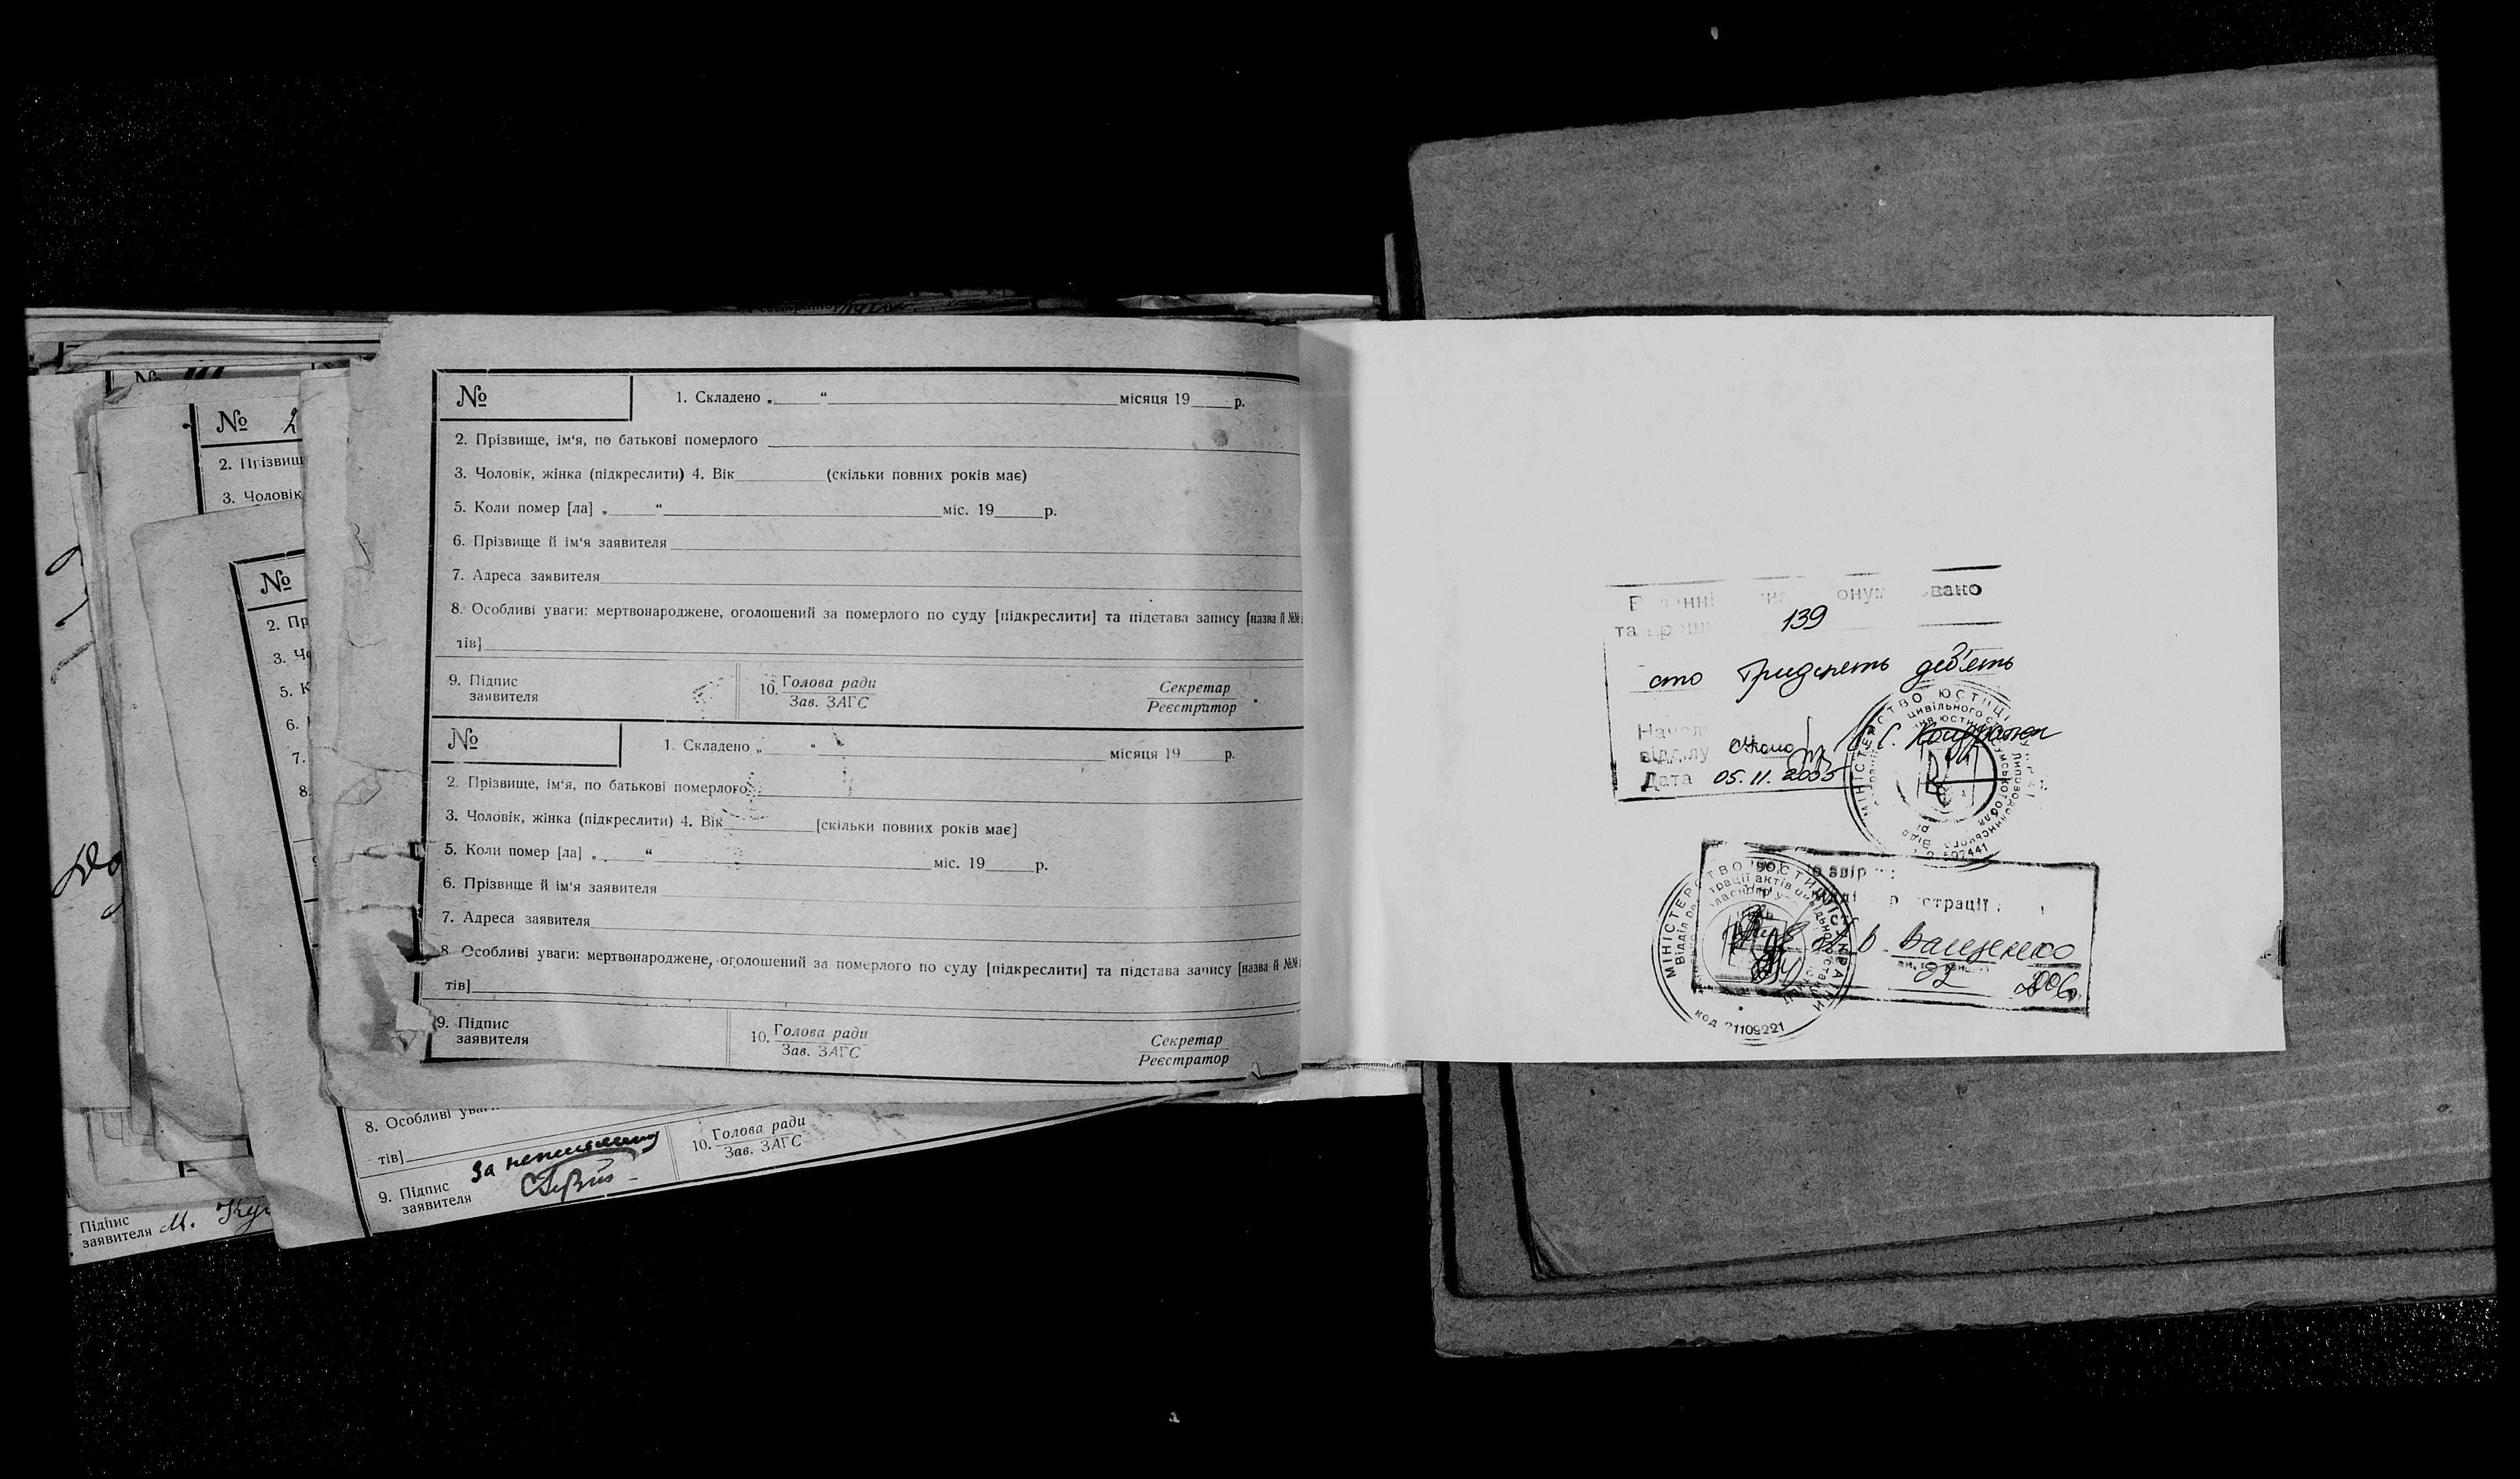 №
1. Складено „ “ місяця 19 р.
2. Прізвище, ім‘я, по батькові померлого
3. Чоловік, жінка (підкреслити) 4. Вік (скільки повних років має)
5. Коли помер [ла] „ “ міс. 19 р.
6. Прізвище й ім‘я заявителя
7. Адреса заявителя
8. Особливі уваги: мертвонароджене, оголошений за померлого по суду [підкреслити] та підстава запису [назва й №№
тів]
9. Підпис заявителя
10. Голова ради
Зав. ЗАГС
Секретар
Реєстратор
№
1. Складено „ “ місяця 19 р.
2. Прізвище, ім‘я, по батькові померлого
3. Чоловік, жінка (підкреслити) 4. Вік [скільки повних років має]
5. Коли помер [ла] „ “ міс. 19 р.
6. Прізвище й ім‘я заявителя
7. Адреса заявителя
8. Особливі уваги: мертвонароджене, оголошений за померлого по суду [підкреслити] та підстава запису [назва й №№
тів]
9. Підпис заявителя
10. Голова ради
Зав. ЗАГС
Секретар
Реєстратор
№ 2
2. Прізвищ
3. Чоловік
№
2. Пр
3. Чо
5. К
6.
7.
8.
8. Особливі ува
тів]
9. Підпис заявителя
10. Голова ради
Зав. ЗАГС
Підпис
заявителя М.
139
сто тридцять дев'ять
відділу
Дата 05.11. 2005
МІНІСТЕРСТВО ЮСТИЦІЇ
В. Ващенко
02 2006
МІНІСТЕРСТВО ЮСТИЦІЇ УКРАЇНИ
код 21109221